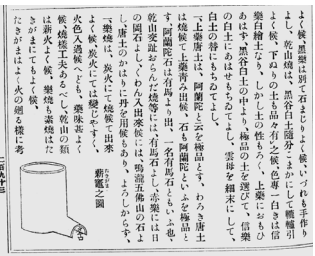 よく候、黒樂は別て石まじりよく候、いづれも手作り
よし、乾山焼は、黒谷白土随分こまかにして轆轤引
よく候、下ぬりの土も品々有之候、色専一白きは信
樂白繪土なり、しかし土の性もろく、上藥におもひ
あはず、黒谷白土の中より、極品の土を選びて、信樂
の白土にあはせもちゐてよし、雲母を細末にして、
白土の替にもちゐてよし、
一上藥唐土は、阿蘭陀と云を極品とす、わろき唐土
は焼候て上藥青み出候、石も阿蘭陀といふを極品と
す、阿蘭陀石は有馬より出、一名有馬石ともいふ也、
乾山変趾おらんだ焼等には、有馬石よし、赤樂には日
の岡石よし、くわん入出來候には、鳴瀧五佛山の石よ
し、唐土のかはりに丹を用候もあり、よろしからず、
一樂焼は、炭火にて焼候て出來
よく候、炭火にては変じやすく、
火色入過候へども、藥味甚よく
候、焼樣工夫あるべし、乾山の類
は薪火よく候、樂焼も素焼はた
きがまにてもよく候、
たきがまはよく火の廻る樣に考
薪竈之圖
たきがま
火口
二百九十三